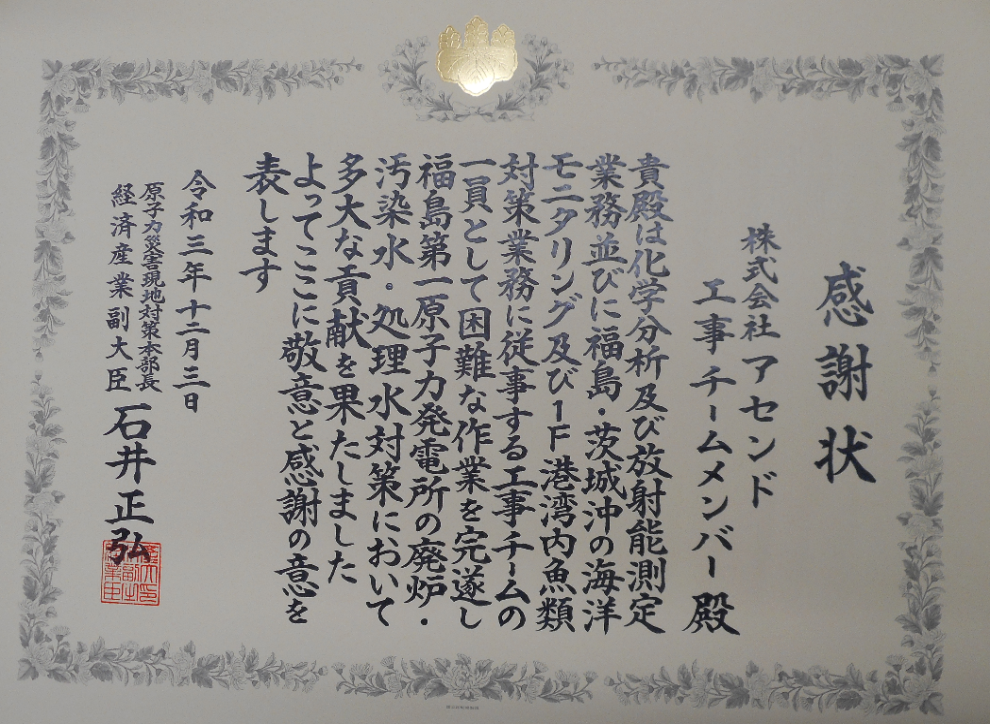 感謝状
株式会社アセンド
工事チームメンバー殿
貴殿は化学分析及び放射能測定
業務並びに福島・茨城沖の海洋
モニタリング及び1F港湾内魚類
対策業務に従事する工事チームの
一員として困難な作業を完遂し
福島第一原子力発電所の廃炉・
汚染水・処理水対策において
多大な貢献を果たしました
よってここに敬意と感謝の意を
表します
令和三年十二月三日
原子力災害現地対策本部長
経済産業副大臣 石井正弘